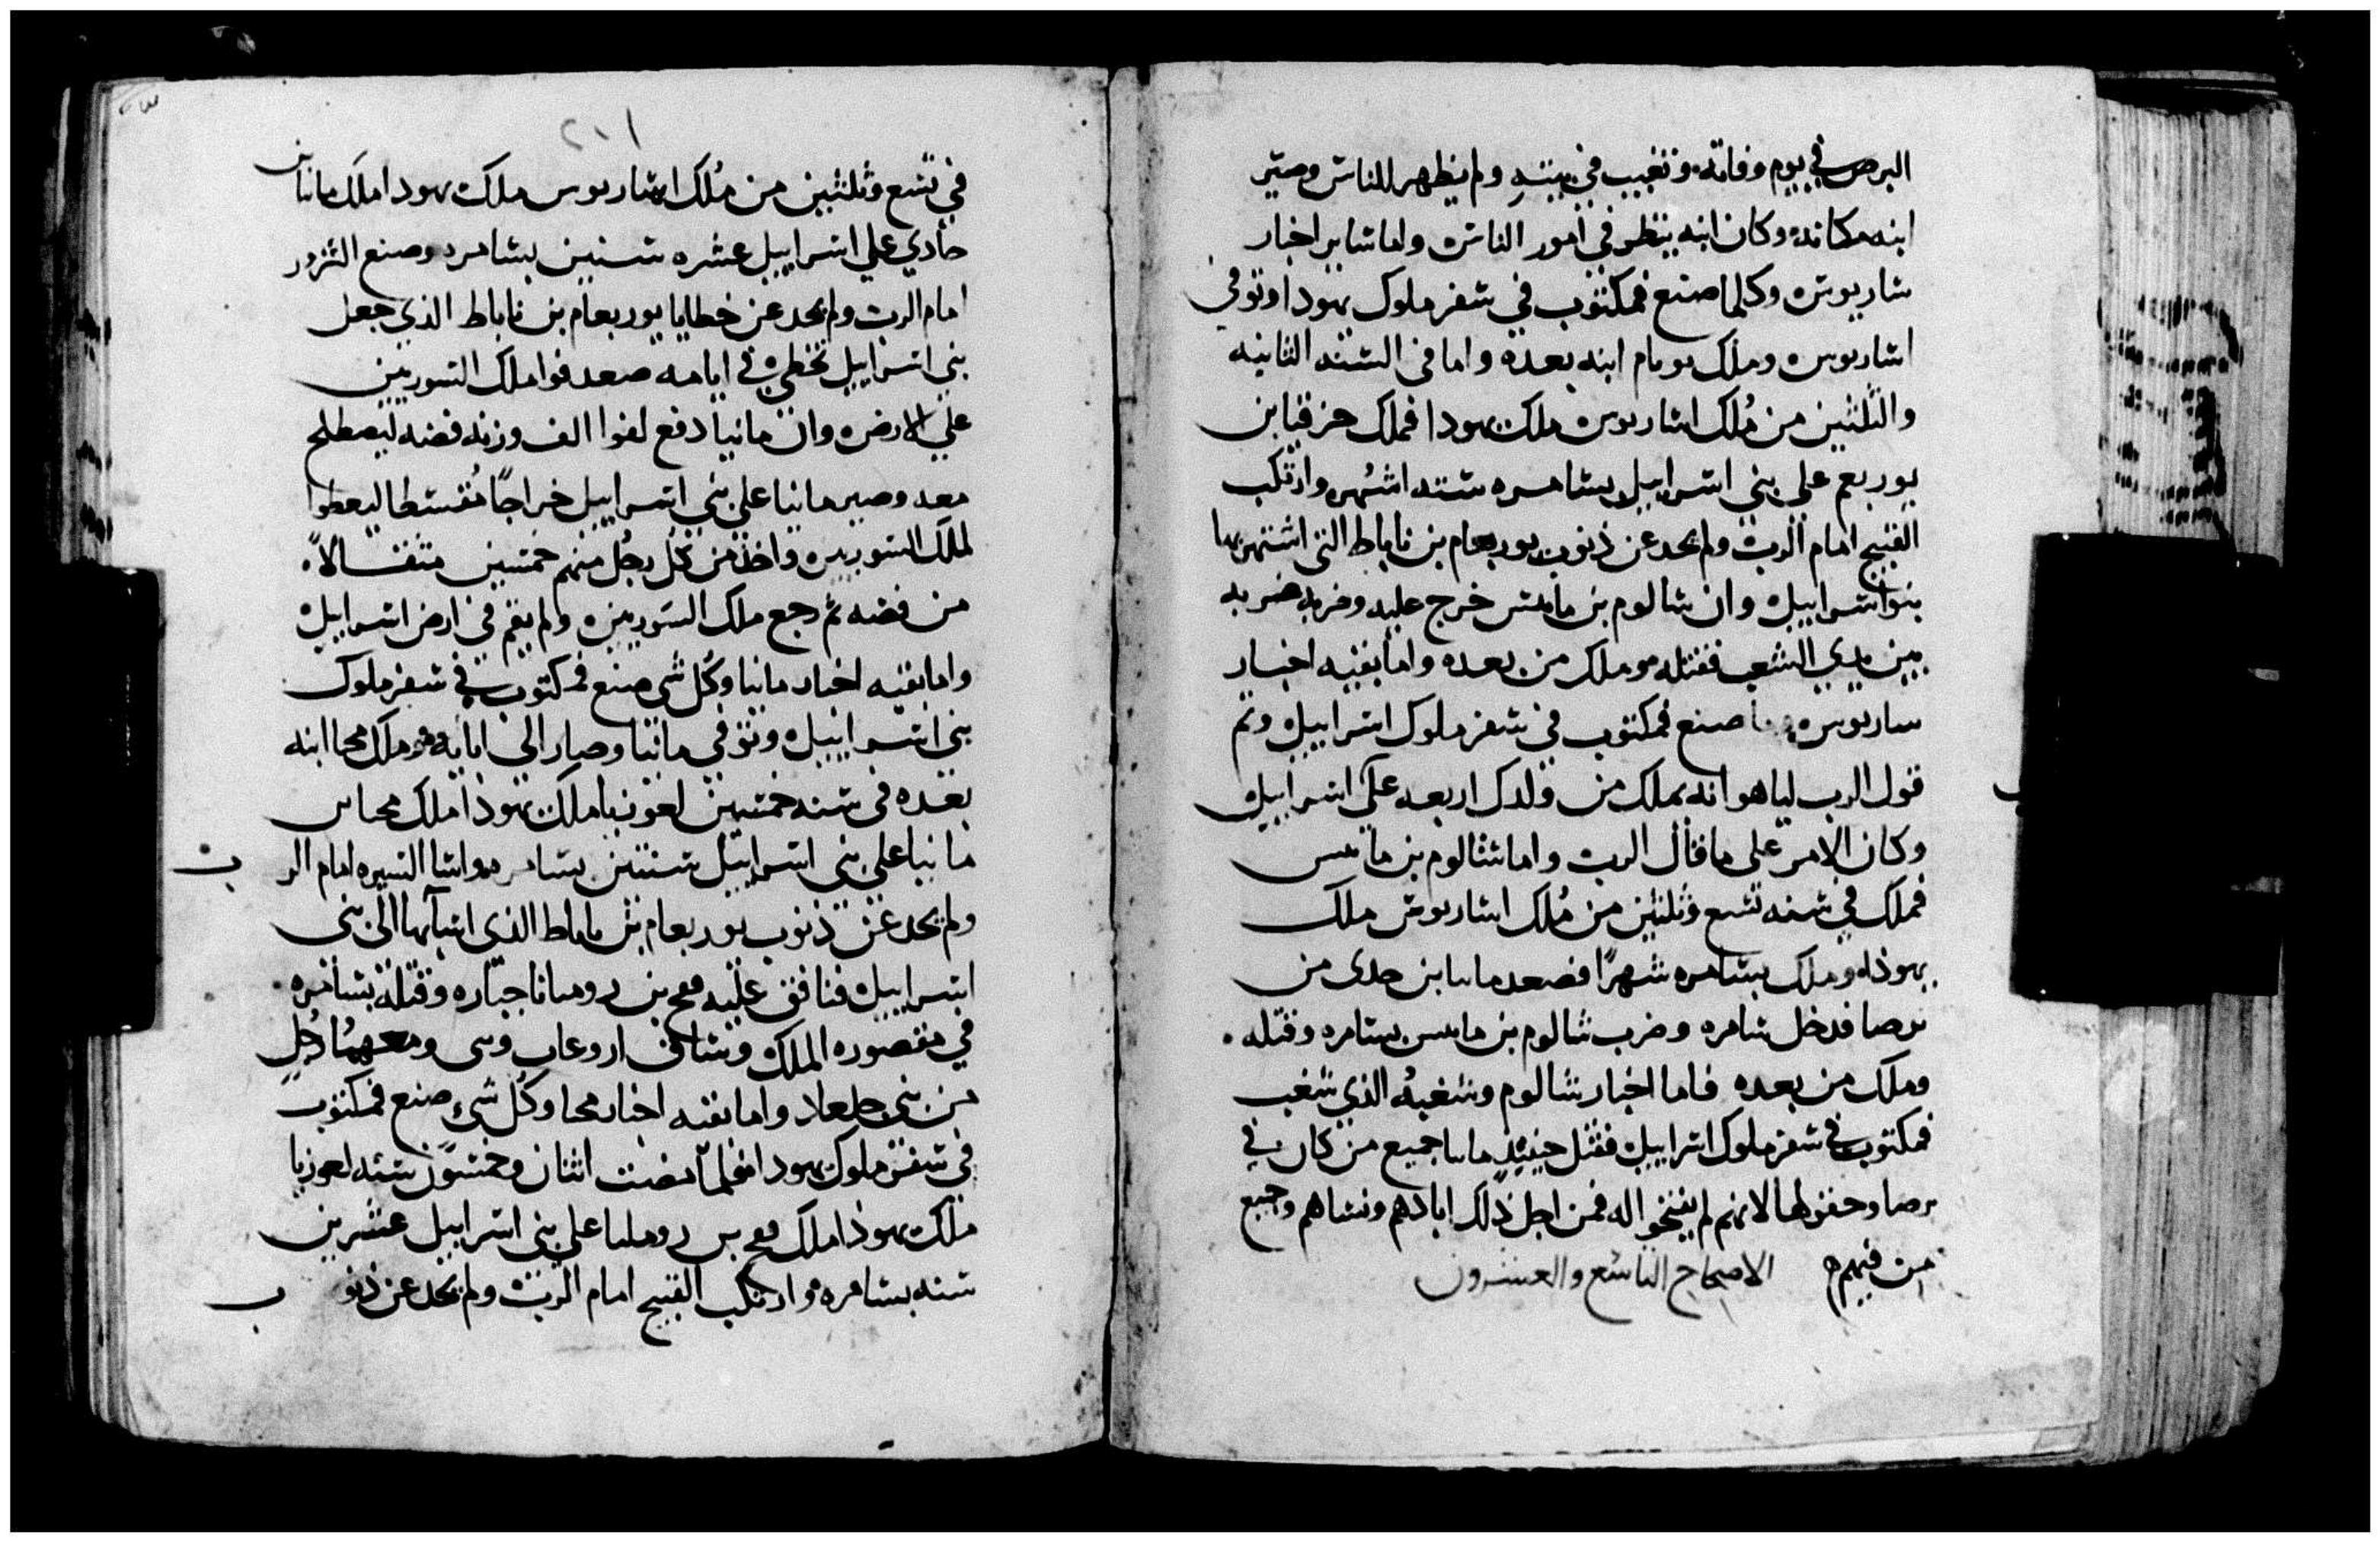 البرص في يوم وفاته وتغيب في بيته ولم يظهر للناس وصير
ابنه مكانه وكان ابنه ينظر في امور الناس واما ساير اخبار
شاريوس وكلما صنع فمكتوب في سفر ملوك يهودا وتوفي
اشاريوس وملك يوبام ابنه بعده واما في السنه الثانيه
والثلثين من مُلك اشاريوس ملك يهودا فملك حزقيا بن
يوربعم على بني اسراييل بسامره ستة اشهر وارتكب
القبيح امام الرب ولم يحد عن ذنوب يوربعام بن ناباط التي اشتهر بها
بنوا اسراييل وان شالوم بن مابس خرج عليه وضربه ضربه
بين يدي الشعب فقتله وملك من بعده واما بقيه اخبار
ساريوس وما صنع فمكتوب في سفر ملوك اسراييل وتم
قول الرب لياهو انه يملك من ولدك اربعه على اسراييل
وكان الامر على ما قال الرب واما شالوم بن مابس
فملك في سنه تسع وثلثين من مُلك اشاريوس ملك
يهوذا وملك بسامره شهرًا فصعد مانيا بن حدى من
برصا فدخل سامره وضرب شالوم بن مابس بسامره وقتله
وملك من بعده فاما اخبار شالوم وشغبهُ الذي شغب
فمكتوب في سفر ملوك اسراييل فقتل حينيذٍ مانيا جميع من كان في
برصا وحفوطها لانهم لم يفتحوا له فمن اجل ذلك ابادهم ونساهم وجميع
من فيهم الاصحاح التاسع والعشرون
٢٠١
في تسع وثلثين من مُلك اشاريوس ملك يهودا ملك مانيا بن
حادي علي اسراييل عشره سنين بسامره وصنع الشرور
امام الرب ولم يحد عن خطايا يوربعام بن ناباط الذي جعل
بني اسراييل تخطي في ايامه صعد فوا ملك السوريين
علي الارض وان مانيا دفع لفوا الف وزنه فضه ليصطلح
معه وصير مانيا على بني اسراييل خراجًا مُقسطا ليعطوا
لملك السوريين واخذ من كل رجُل منهم خمسين مثقالاً
من فضه ثم رجع ملك السوريين ولم يقم في ارض اسراييل
واما بقيه اخبار مانيا وكُل شي صنع فمكتوب في سفر ملوك
بني اسراييل وتوفي مانيا وصار الى ابايه وملك محيا ابنه
بعده في سنه خمسين لعوزيا ملك يهوذا ملك محيا بن
مانيا على بني اسراييل سنتين بسامره واسا السيره امام الرب
ولم يحد عن ذنوب يوربعام بن ناباط الذي اسابها الى بني
اسراييل فنافق عليه فقح بن روميانا جباره وقتله بسامره
في مقصوره الملك وشافق اروعاب وسى ومعهمُا رجُل
من بني جلعاد واما بقيه اخبار محيا وكُل شي صنع فمكتوب
في سفر ملوك يهودا فلما مضت اثنان وخمسون سنه لعوزيا
ملك يهوذا ملك فقح بن روميليا على بني اسراييل عشرين
سنه بسامره وارتكب القبيح امام الرب ولم يحد عن ذنوب